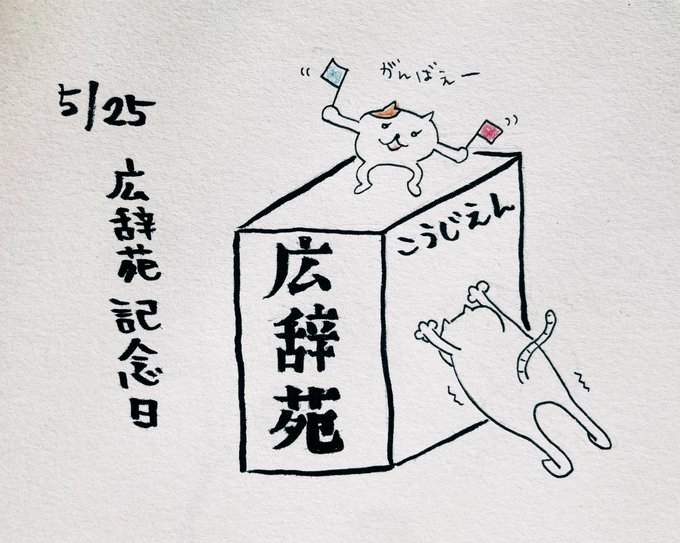 5/25
広辞苑 記念日
がんばえー
こうじえん
広辞苑